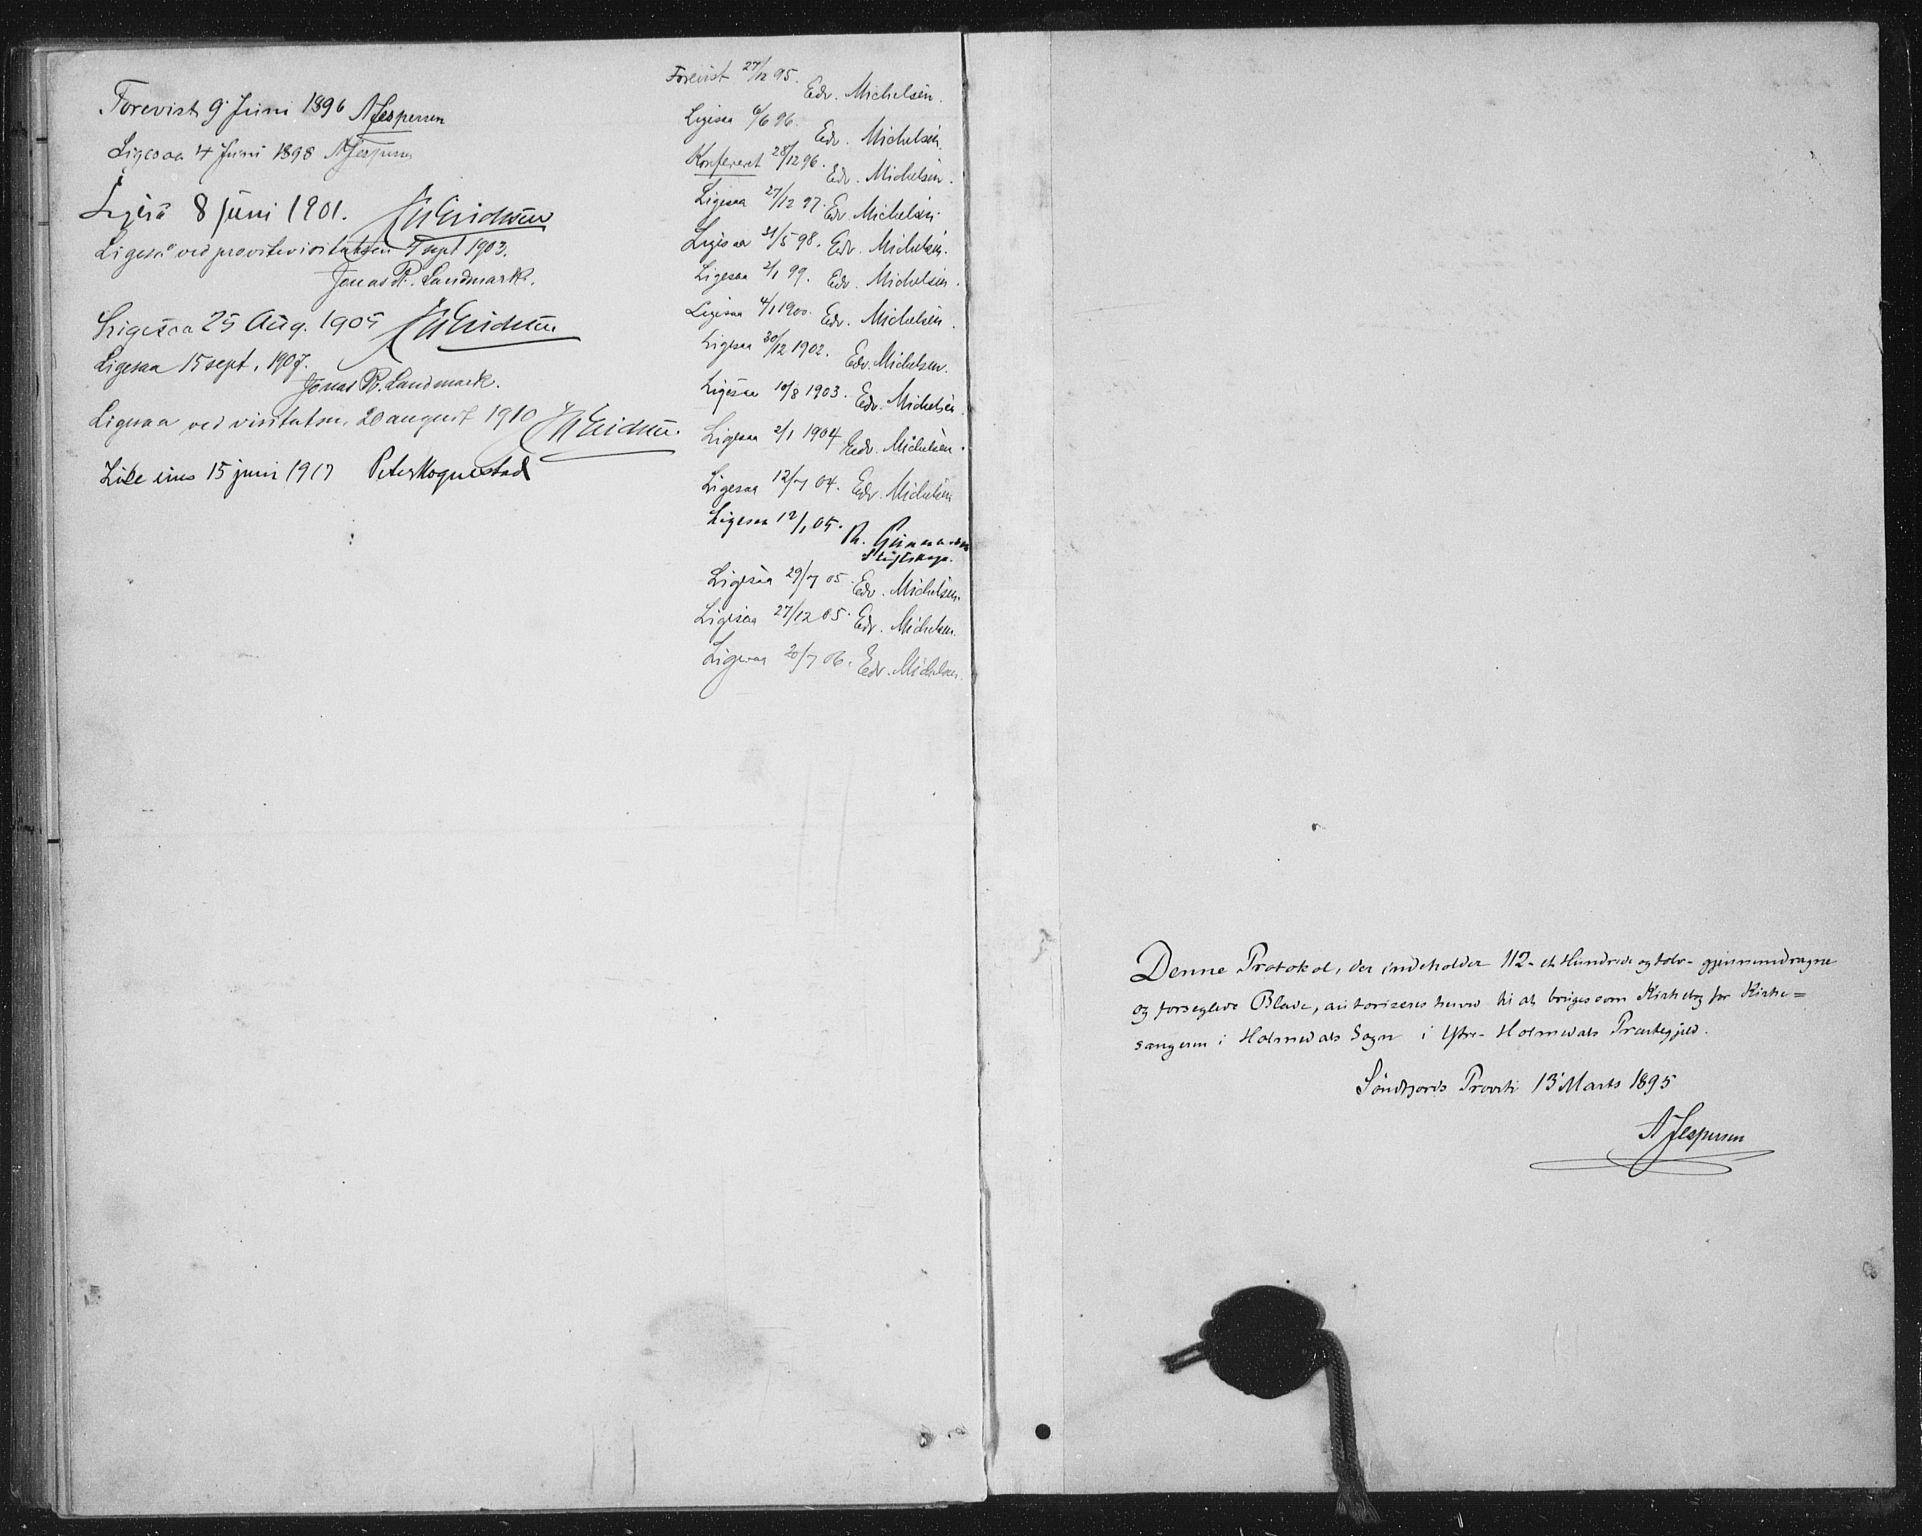 Forevist 9' Juni 1896 AJespersen
Ligesaa 4 Juni 1898 AJespersen
Ligeså 8 juni 1901.
Ligeså ved provstevisitatsen 4 sept 1903.
Jonas R. Landmark.
Ligesaa 25 Aug. 1905
Ligesaa 15 sept. 1907.
Jonas R. Landmark.
Ligesaa ved visitatsen, 20 august 1910
Like eins 15 juni 1917 Peter Hognestad
Forevist 27/12 95. Edv. Michelsen.
Ligesaa 6/6 96. Edv. Michelsen.
Konfereret 28/12 96. Edv. Michelsen.
Ligesaa 27/12 97. Edv. Michelsen.
Ligesaa 31/5 98. Edv. Michelsen.
Ligesaa 2/1 99. Edv. Michelsen.
Ligesaa 4/1 1900. Edv. Michelsen.
Ligesaa 30/12 1902. Edv. Michelsen.
Ligesaa 10/8 1903. Edv. Michelsen.
Ligesaa 2/1 1904 Edv. Michelsen.
Ligesaa 12/7 04. Edv. Michelsen
Ligesaa 12/1 05. Gunnarson
Stiftskap.
Ligesaa 29/7 05. Edv. Michelsen.
Ligesaa 27/12 05. Edv. Michelsen.
Ligesaa 20/7 06. Edv. Michelsen.
Denne Protokol, der indeholder 112 - et Hundrede og tolv - gjennemdragne
og forseglede Blade, autoriseres herved til at bruges som Kirkebog for Kirke=
sangeren i Holmedals Sogn i Ytre-Holmedals Præstegjeld.
Søndfjords Provsti 13' Marts 1895
AJespersen